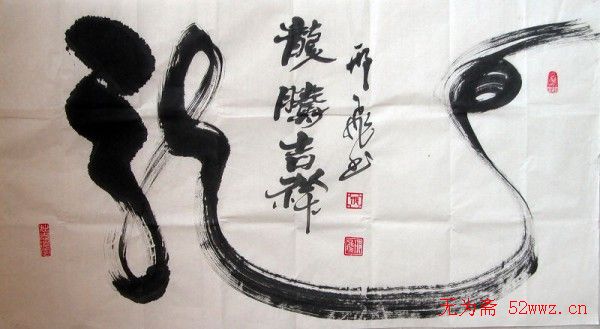 龙
龍騰吉祥
邢飛书
无为斋 52wwz.cn